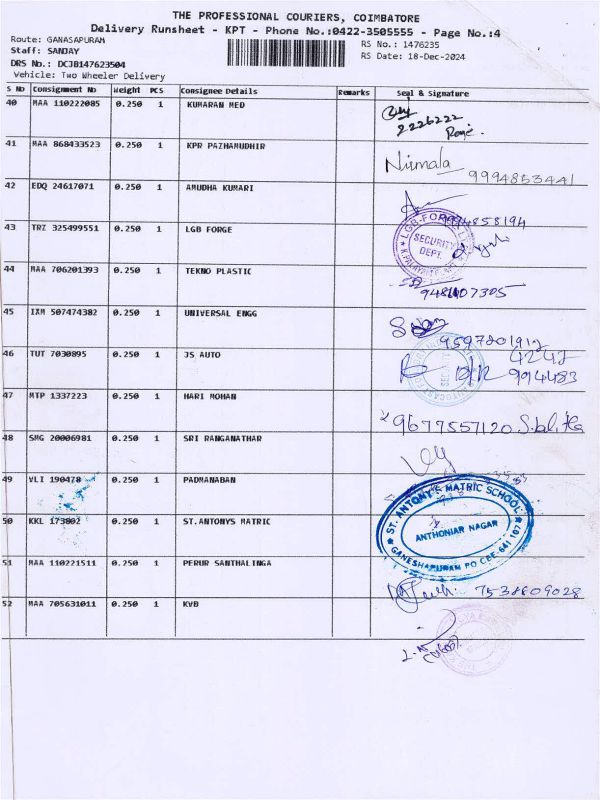 THE PROFESSIONAL COURIERS, COIMBATORE
Delivery Runsheet - KPT - Phone No.:0422-3505555 - Page No.:4
Route: GANASAPURAM
Staff: SANJAY
DRS No.: DCJB147623504
Vehicle: Two Wheeler Delivery
RS No.: 1476235
RS Date: 18-Dec-2024
S No Consignment No Weight PCS Consignee Details Remarks Seal & Signature
40 MAA 110222085 0.250 1 KUMARAN MED
2226222
41 MAA 868433523 0.250 1 KPR PAZHAMUDHIR
Nirmala 9994853441
42 EDQ 24617071 0.250 1 AMUDHA KUMARI
9974858194
43 TRZ 325499551 0.250 1 LGB FORGE
SECURITY DEPT.
44 MAA 706201393 0.250 1 TEKNO PLASTIC
45 IXM 507474382 0.250 1 UNIVERSAL ENGG
46 TUT 7030895 0.250 1 JS AUTO
47 MTP 1337223 0.250 1 HARI MOHAN
9677557120
48 SMG 20006981 0.250 1 SRI RANGANATHAR
49 VLI 190478 0.250 1 PADMANABAN
50 KKL 173802 0.250 1 ST.ANTONYS MATRIC
ST. ANTONY'S MATRIC SCHOOL
ANTHONIAR NAGAR
GANESHAPURAM PO CBE-641 107
51 MAA 110221511 0.250 1 PERUR SANTHALINGA
7538609028
52 MAA 705631011 0.250 1 KVB